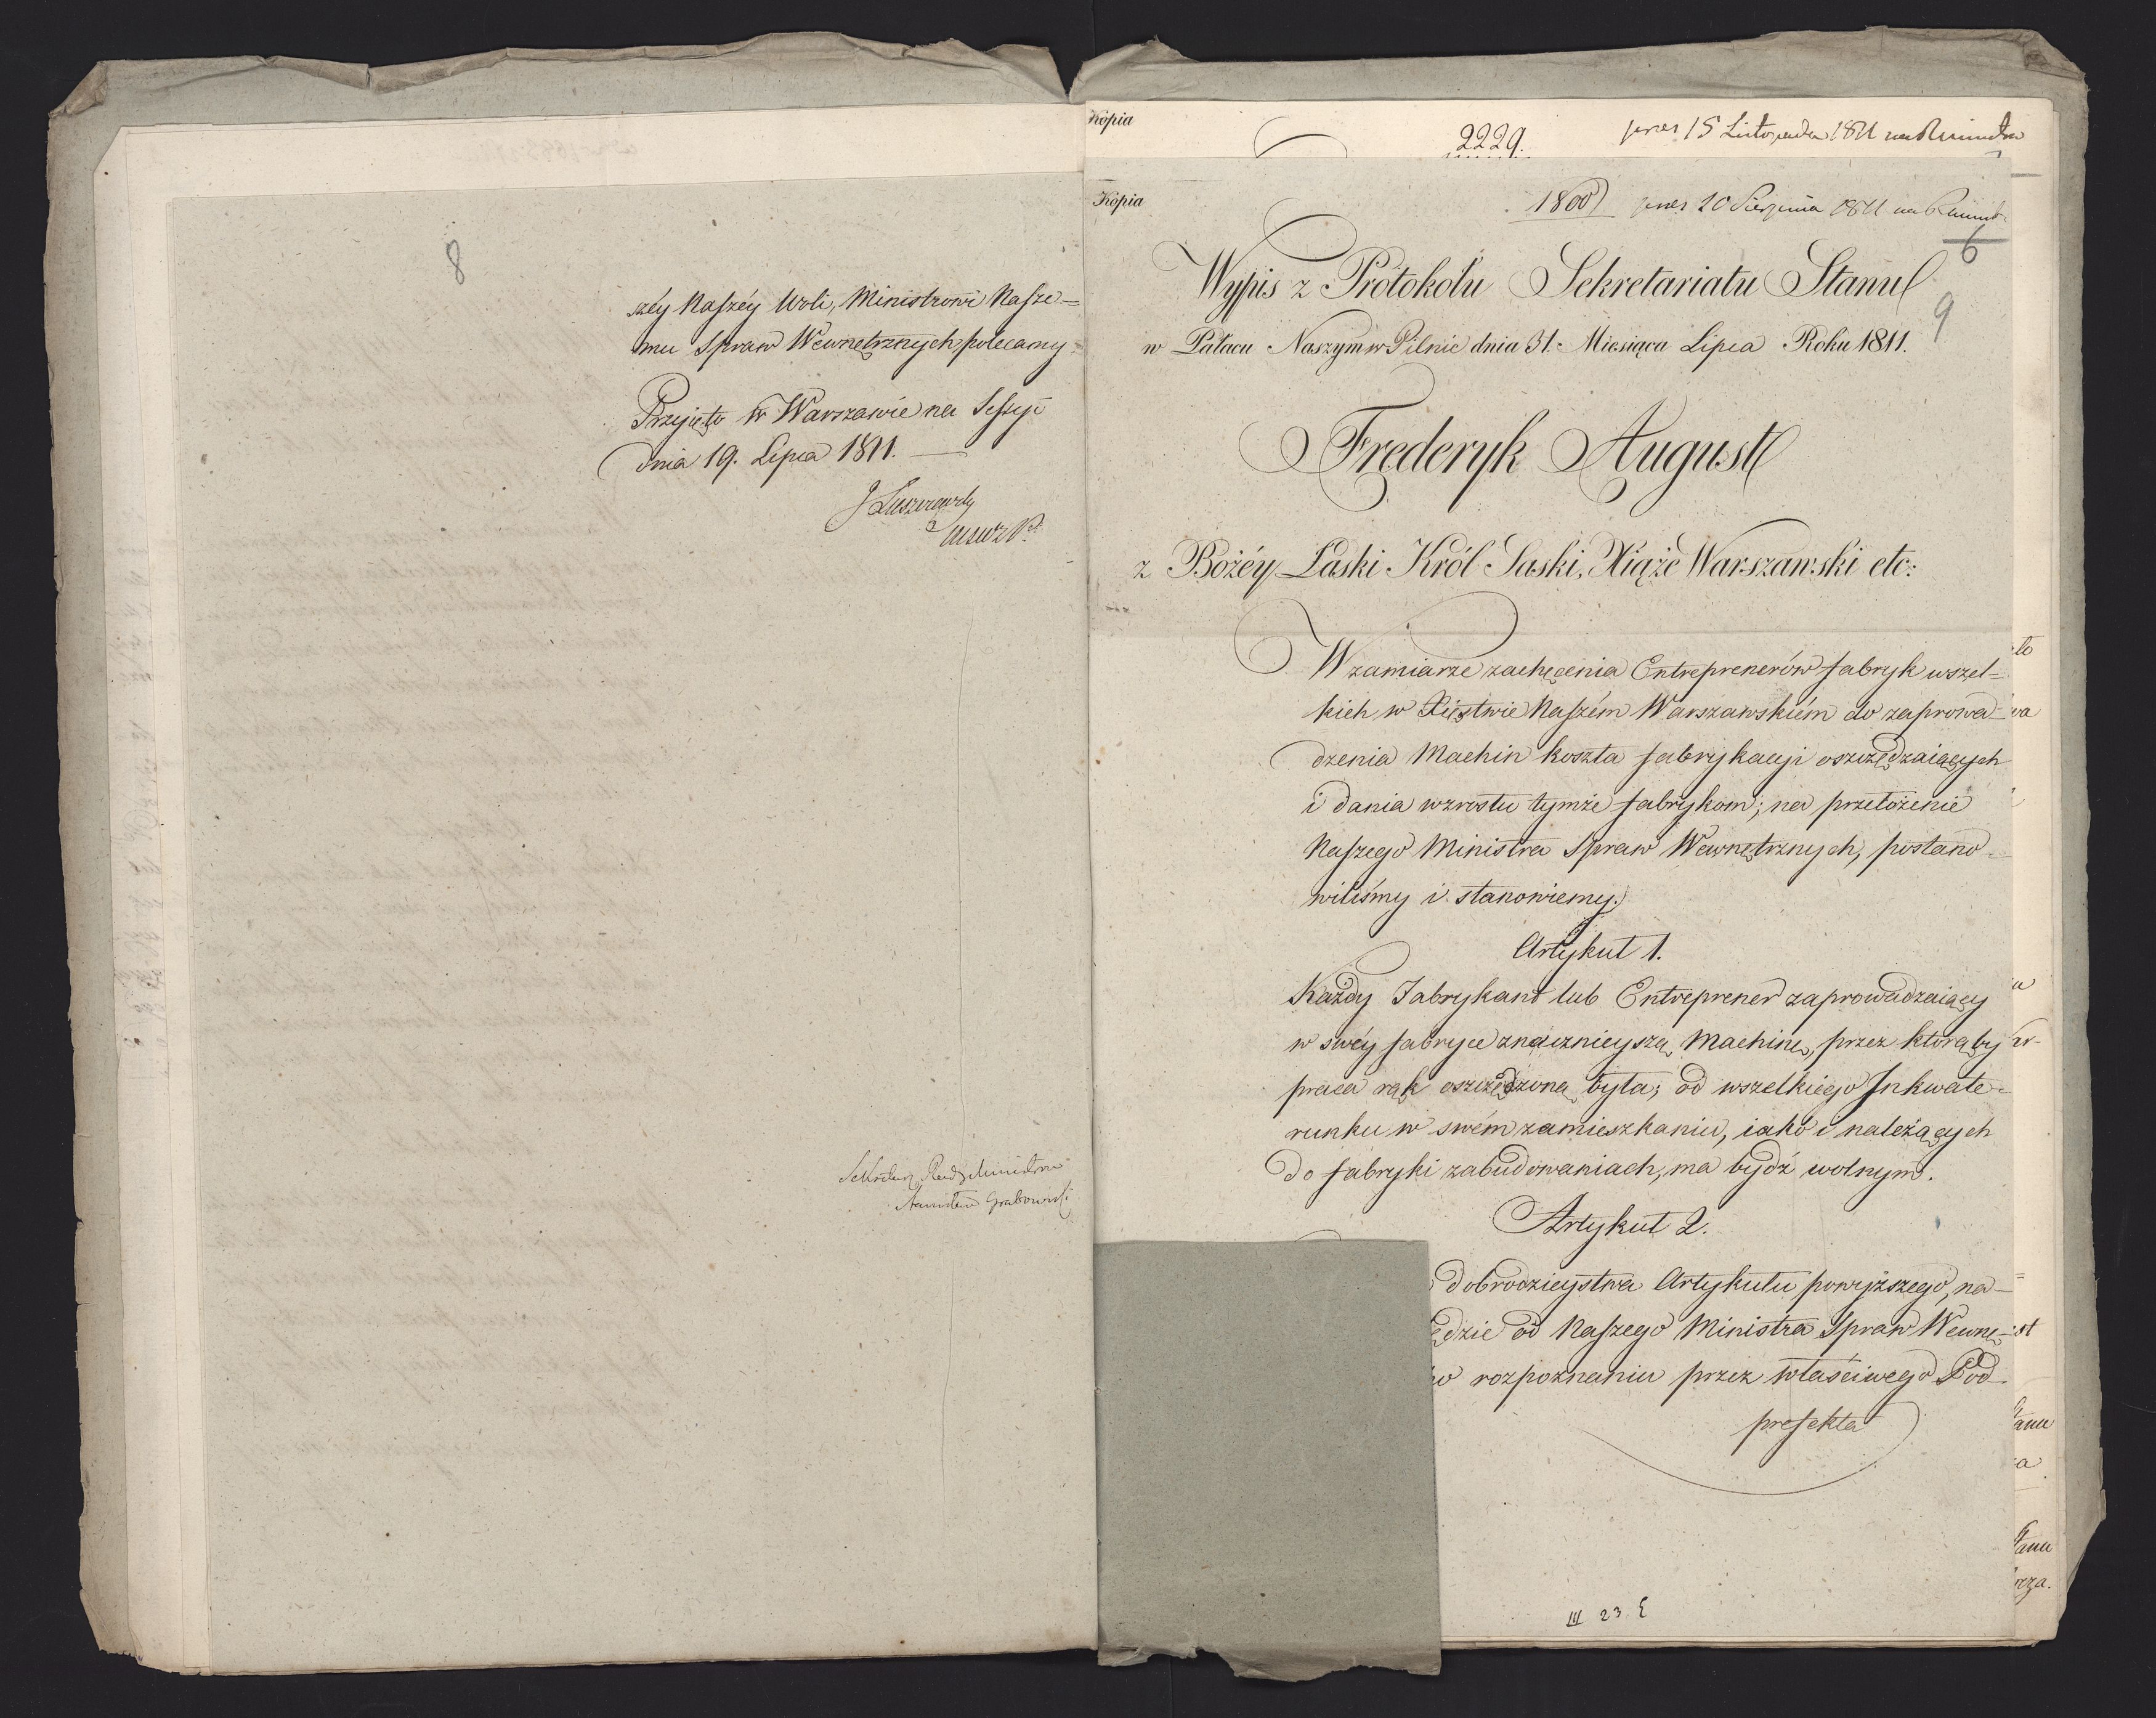 8
széy Naszéy Woli, Ministrowi Nasze=
mu Spraw Wewnętrznych polecamy=
Przyięto w Warszawie na Sessyi
dnia 19. Lipca 1811.
J Łuszczewsky
Sekretarz Rady Ministrow
Stanisław Grabowski
Kopia
2229.
pres 15 Listopada 1811 na R
Kopia
1800
pres 20 Sierpnia 1811 na R
6
Wypis z Protokołu Sekretariatu Stanu
9
w Pałacu Naszym w Pilnic dnia 31. Miesiąca Lipca Roku 1811.
Fręderyk August
z Bożéy Łaski Król Saski, Xiąże Warszawski etc:
W zamiarze zachęcenia Entreprenerów fabryk wszel=
kich w Xięstwie Naszém Warszawskiém do zaprowa=
dzenia Machin koszta fabrykacyi oszczędzaiących
i dania wzrostu tymże fabrykom; na przełożenie
Naszego Ministra Spraw Wewnętrznych, postano=
wiliśmy i stanowiemy.
Artykuł 1.
Każdy Fabrykant lub Entreprener zaprowadzaiący
w swéy fabryce znacznieyszą Machinę, przez którąby
praca rąk oszczędzoną była; od wszelkiego Inkwate=
runku w swém zamieszkaniu, iako i należących
do fabryki zabudowaniach, ma bydź wolnym.
Artykuł 2.
dobrodzieystwa Artykułu powyższego, na=
ędzie od Naszego Ministra Spraw Wewnę=
o rozpoznaniu przez właściwego Pod=
prefekta
III 23 ξ